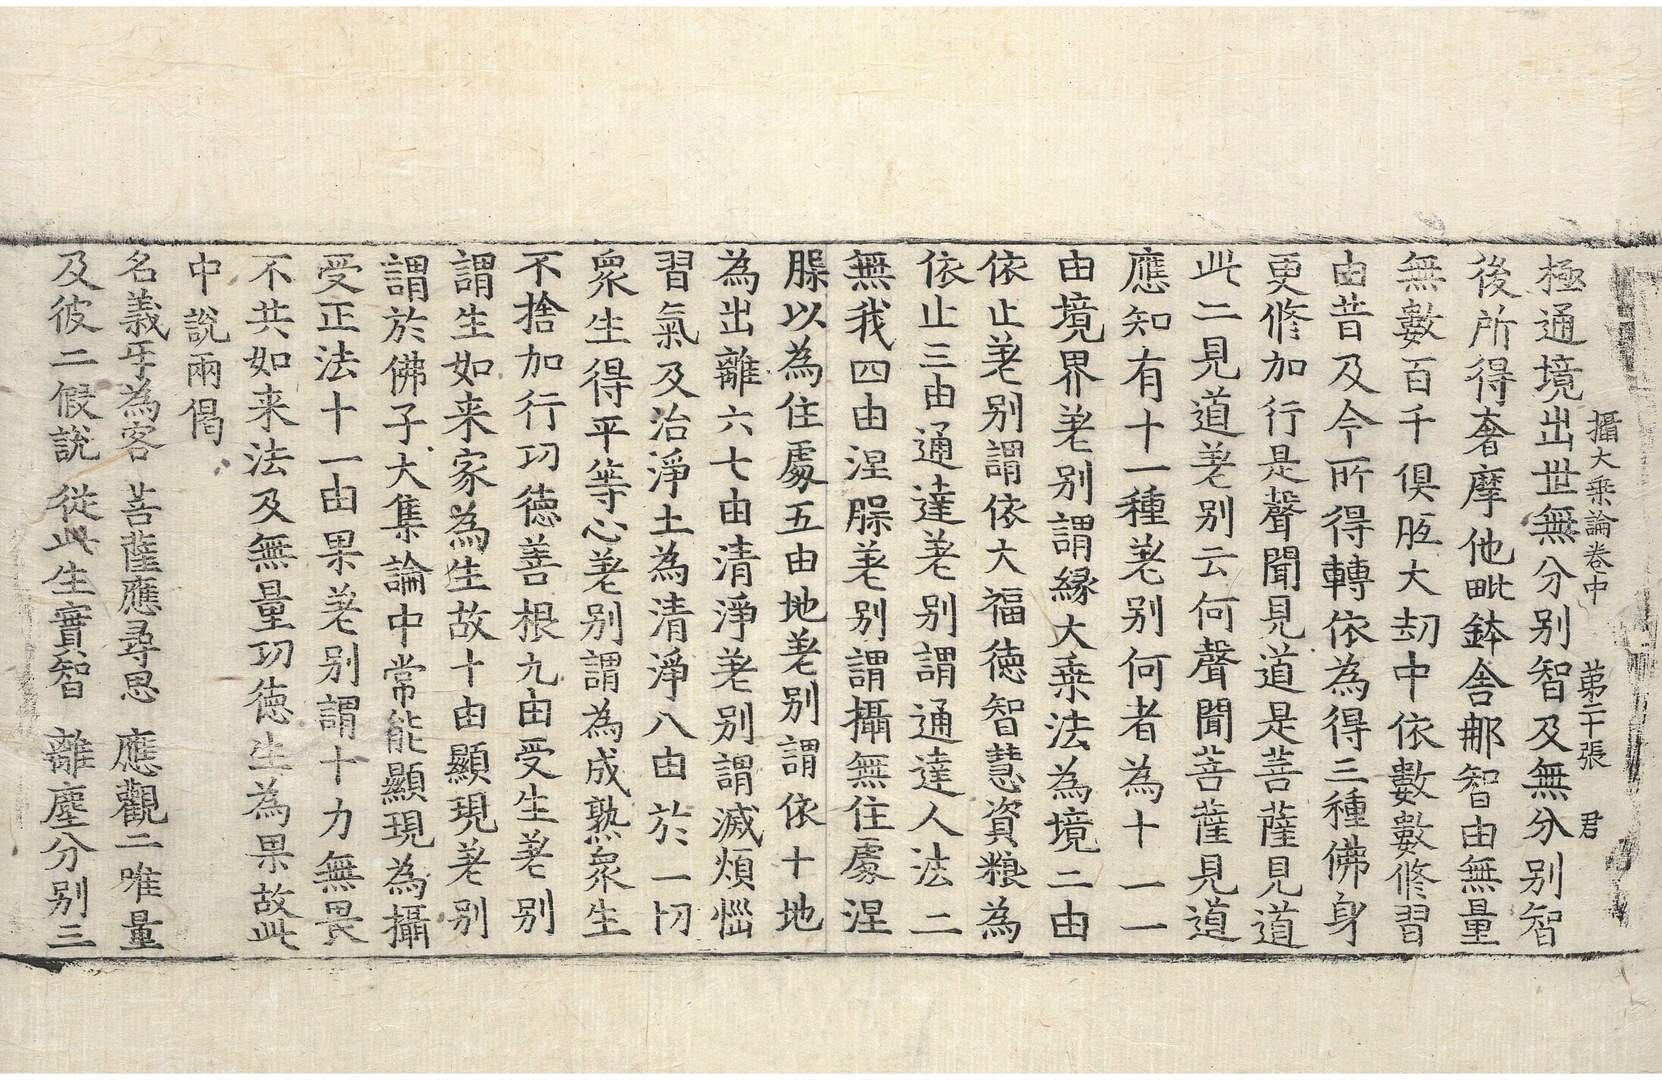 攝大乘論卷中 第二十張 君
極通境出世無分别智及無分别智
後所得奢摩他毗鉢舍那智由無量
無數百千俱胝大劫中依數數修習
由昔及今所得轉依為得三種佛身
更修加行是聲聞見道是菩薩見道
此二見道差别云何聲聞菩薩見道
應知有十一種差别何者為十一一
由境界差别謂緣大乘法為境二由
依止差别謂依大福德智慧資粮為
依止三由通達差别謂通達人法二
無我四由涅槃差别謂攝無住處涅
槃以為住處五由地差别謂依十地
為出離六七由清淨差别謂滅煩惱
習氣及治淨土為清淨八由於一切
衆生得平等心差别謂為成熟衆生
不捨加行功德善根九由受生差别
謂生如来家為生故十由顯現差别
謂於佛子大集論中常能顯現為攝
受正法十一由果差别謂十力無畏
不共如来法及無量功德生為果故此
中說兩偈
名義互為客 菩薩應尋思 應觀二唯量
及彼二假說 從此生實智 離塵分别三